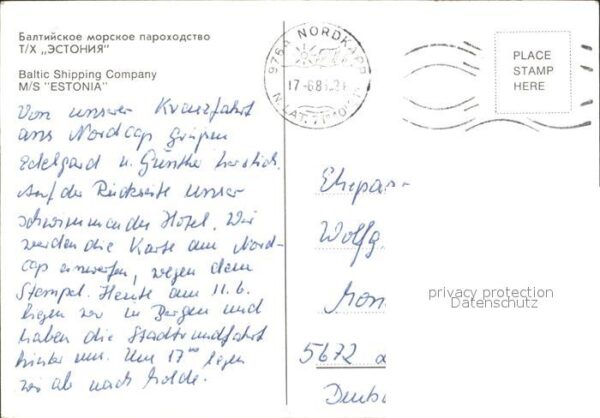 Балтийское морское пароходство
Т/Х „ЭСТОНИЯ"
Baltic Shipping Company
M/S "ESTONIA"
Von unserer Kreuzfahrt
ans Nordcap grüßen
Edelgard u. Günther herzlich.
Auf der Rückseite unser
schwimmendes Hotel. Wir
werden die Karte am Nord-
cap einwerfen, wegen dem
Stempel. Heute am 11.6.
liegen wir in Bergen und
haben die Stadtrundfahrt
hinter uns. Um 17⁰⁰ legen
wir ab nach Molde.
9764 NORDKAPP
17-6
N.LAT. 71°
PLACE
STAMP
HERE
Ehepaar
Wolfg.
Mon
privacy protection
Datenschutz
5672
Deuts